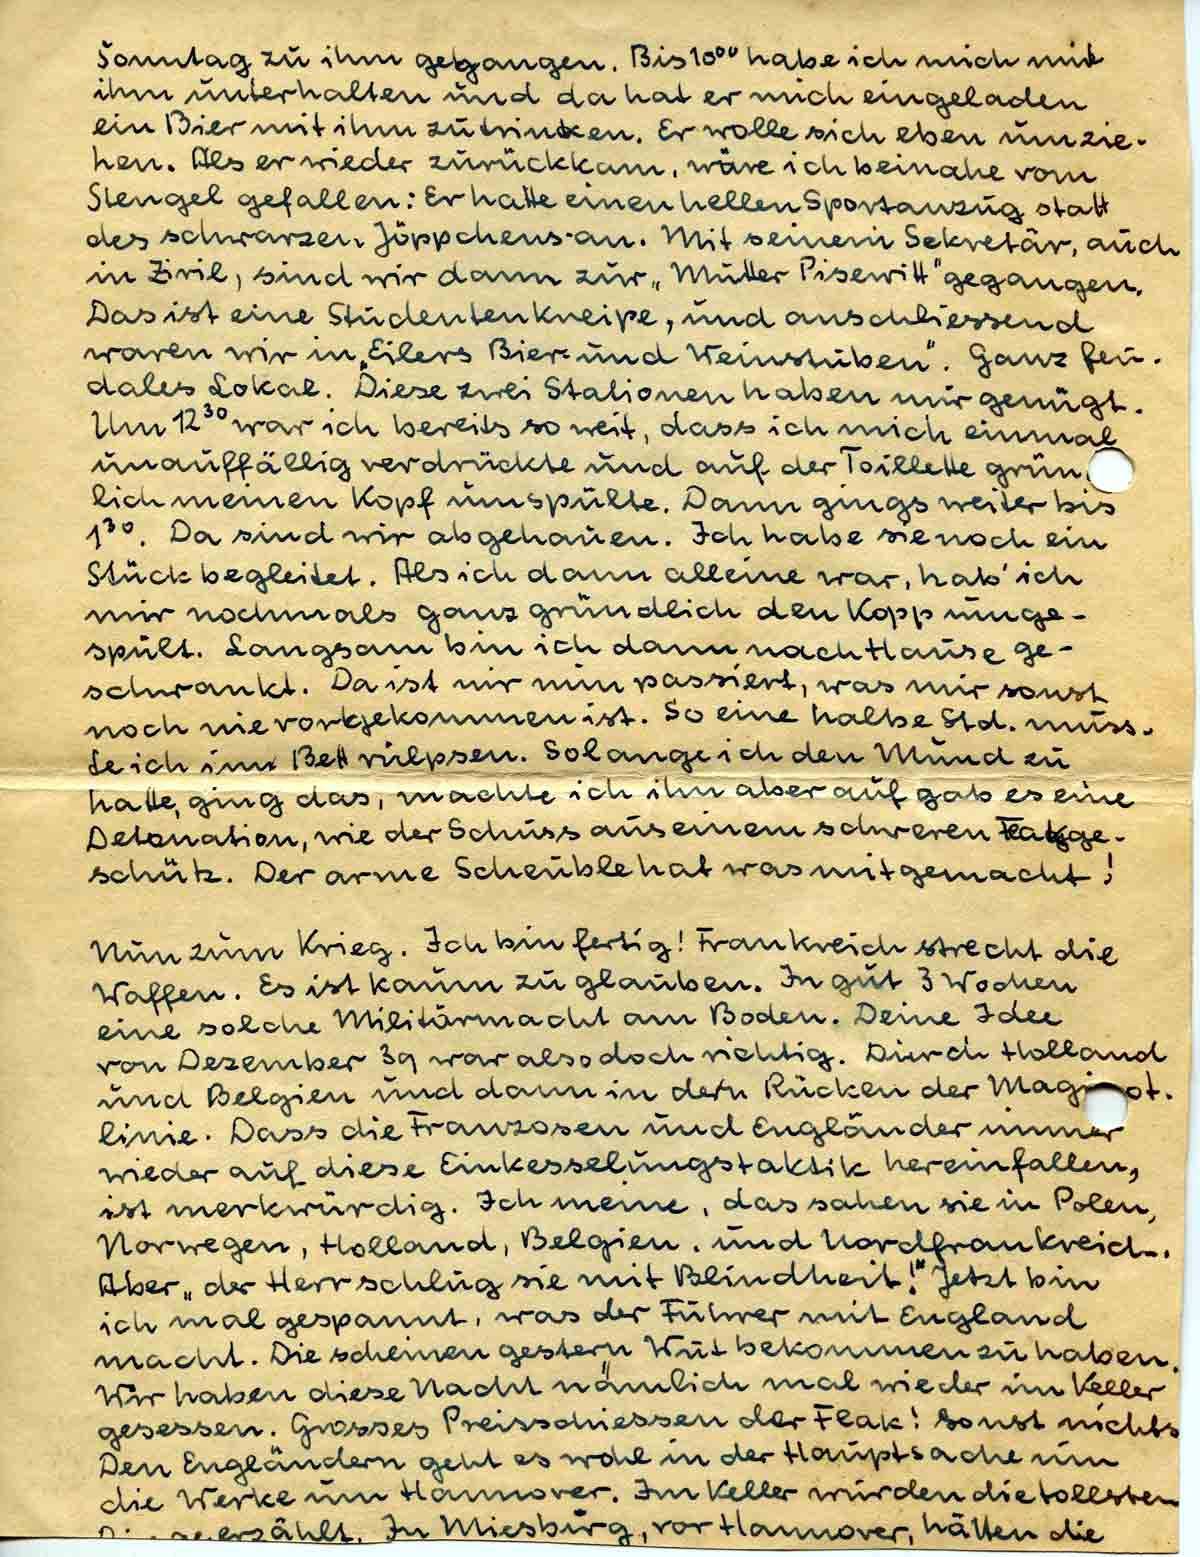 Sonntag zu ihm gegangen. Bis 10⁰⁰ habe ich mich mit
ihm unterhalten und da hat er mich eingeladen
ein Bier mit ihm zu trinken. Er wolle sich eben umzie-
hen. Als er wieder zurückkam, wäre ich beinahe vom
Stengel gefallen: Er hatte einen hellen Sportanzug statt
des schwarzen Jöppchens an. Mit seinem Sekretär, auch
in Zivil, sind wir dann zur „Mutter Pisewitt" gegangen.
Das ist eine Studentenkneipe, und anschliessend
waren wir in „Eilers Bier- und Weinstuben". Ganz feu-
dales Lokal. Diese zwei Stationen haben mir genügt.
Um 12³⁰ war ich bereits so weit, dass ich mich einmal
unauffällig verdrückte und auf der Toillette grün
lich meinen Kopf umspülte. Dann gings weiter bis
1³⁰. Da sind wir abgehauen. Ich habe sie noch ein
Stück begleitet. Als ich dann alleine war, hab' ich
mir nochmals ganz gründlich den Kopp umge-
spült. Langsam bin ich dann nach Hause ge-
schwankt. Da ist mir nun passiert, was mir sonst
noch nie vorgekommen ist. So eine halbe Std. muss-
te ich im Bett rülpsen. Solange ich den Mund zu
hatte, ging das, machte ich ihn aber auf gab es eine
Detonation, wie der Schuss aus einem schweren Flakge-
schütz. Der arme Scheuble hat was mitgemacht!
Nun zum Krieg. Ich bin fertig! Frankreich streckt die
Waffen. Es ist kaum zu glauben. In gut 3 Wochen
eine solche Militärmacht am Boden. Deine Idee
von Dezember 39 war also doch richtig. Durch Holland
und Belgien und dann in den Rücken der Magi ot-
linie. Dass die Franzosen und Engländer immer
wieder auf diese Einkesselungstaktik hereinfallen,
ist merkwürdig. Ich meine, das sahen sie in Polen,
Norwegen, Holland, Belgien. und Nordfrankreich.
Aber „der Herr schlug sie mit Blindheit!" Jetzt bin
ich mal gespannt, was der Führer mit England
macht. Die scheinen gestern Wut bekommen zu haben.
Wir haben diese Nacht nämlich mal wieder im Keller
gesessen. Grosses Preisschiessen der Flak! sonst nichts
Den Engländern geht es wohl in der Hauptsache um
die Werke um Hannover. Im Keller wurden die tollsten
erzählt. In Miesburg, vor Hannover, hätten die